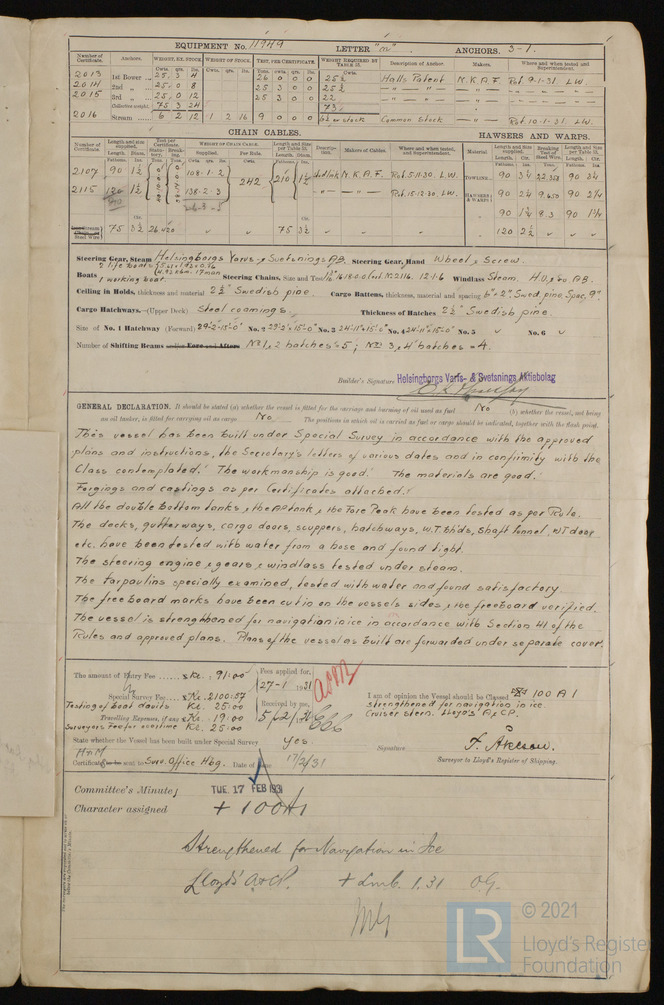 EQUIPMENT No. 11949 LETTER "m" ANCHORS. 3-1.
Number of Certificate. Anchors. WEIGHT, EX. STOCK. WEIGHT OF STOCK. TEST, PER CERTIFICATE. WEIGHT REQUIRED BY TABLE 31. Description of Anchor. Makers. Where and when tested and Superintendent.
2013 1st Bower 25 3 4 26 0 0 0 25½ Halls Patent M.K.A.F. Rot. 9.1.31. L.W.
2014 2nd 25 0 8 25 3 0 0 25½ " " "
2015 3rd 25 0 12 25 3 0 0 22 " " "
Collective weight 75 3 24
2016 Stream 6 2 12 1 2 16 9 0 0 0 Common Stock " Rot. 10.1.31. L.W.
CHAIN CABLES. HAWSERS AND WARPS.
2107 90 1½ 108-1-2 242 210 1½ M.K.A.F. Rot. 5.11.30. L.W. 90 3¼ 22,358 90 3¼
2115 120 1½ 138-2-3 Rot. 15.12.30. L.W. 90 2¼ 9,650 90 2¼
90 1¾ 8.3 90 1¾
75 3½ 26 420 " " 75 3½ 120 2½ " "
Steering Gear, Steam Helsingborgs Varvs- & Svetsnings A.B. Steering Gear, Hand Wheel & Screw.
Boats 2 life boats 1 working boat Steering Chains, Size and Test Windlass Steam.
Ceiling in Holds, thickness and material 2½" Swedish pine. Cargo Battens, thickness, material and spacing 6"×2" Swed. pine, Spac. 9".
Cargo Hatchways.—(Upper Deck) Steel coamings. Thickness of Hatches 2½" Swedish pine.
Size of No. 1 Hatchway (Forward) 29'-2"×15'-0" No. 2 29'-2"×15'-0" No. 3 24'-11"×15'-0" No. 4 24'-11"×15'-0" No. 5 No. 6
Number of Shifting Beams and/or Fore and Afters No 1, & 2 hatches = 5; No 3, & 4 hatches = 4.
Builder's Signature Helsingborgs Varfs- & Svetsnings Aktiebolag
GENERAL DECLARATION. It should be stated (a) whether the vessel is fitted for the carriage and burning of oil used as fuel No (b) whether the vessel, not being
an oil tanker, is fitted for carrying oil as cargo No. The positions in which oil is carried as fuel or cargo should be indicated, together with the flash point.
This vessel has been built under Special Survey in accordance with the approved
plans and instructions, the Secretary's letters of various dates and in confirmity with the
Class contemplated. The workmanship is good. The materials are good.
Forgings and castings as per Certificates attached.
All the double bottom tanks, the AP tank, & the Fore Peak have been tested as per Rule.
The decks, gutterways, cargo doors, scuppers, hatchways, W.T. bhds, shaft tunnel, WT door
etc. have been tested with water from a hose and found tight.
The steering engine & gears & windlass tested under steam.
The tarpaulins specially examined, tested with water and found satisfactory
The freeboard marks have been cut in on the vessels sides & the freeboard verified.
The vessel is strengthened for navigation in ice in accordance with Section 41 of the
Rules and approved plans. Plans of the vessel as built are forwarded under separate cover.
The amount of Entry Fee Kr. 91.00 Fees applied for, 27-1 1931
Special Survey Fee Kr. 2100:57 Received by me,
Testing of boat davits Kr. 25.00 5/2/31
Travelling Expenses, if any Kr. 19.00
Surveyors Fee for overtime Kr. 25.00
I am of opinion the Vessel should be Classed 100 A 1
strengthened for navigation in ice.
Cruiser Stern. Lloyd's A & CP.
State whether the Vessel has been built under Special Survey Yes.
Signature F. Åkesson.
Surveyor to Lloyd's Register of Shipping.
Certificate sent to Surv. Office Hbg. Date of issue 17/2/31
Committee's Minute TUE. 17 FEB 1931
Character assigned + 100A1
Strengthened for Navigation in Ice
Lloyd's A&CP. + Lmb. 1.31 O.G.
LR
© 2021
Lloyd's Register
Foundation